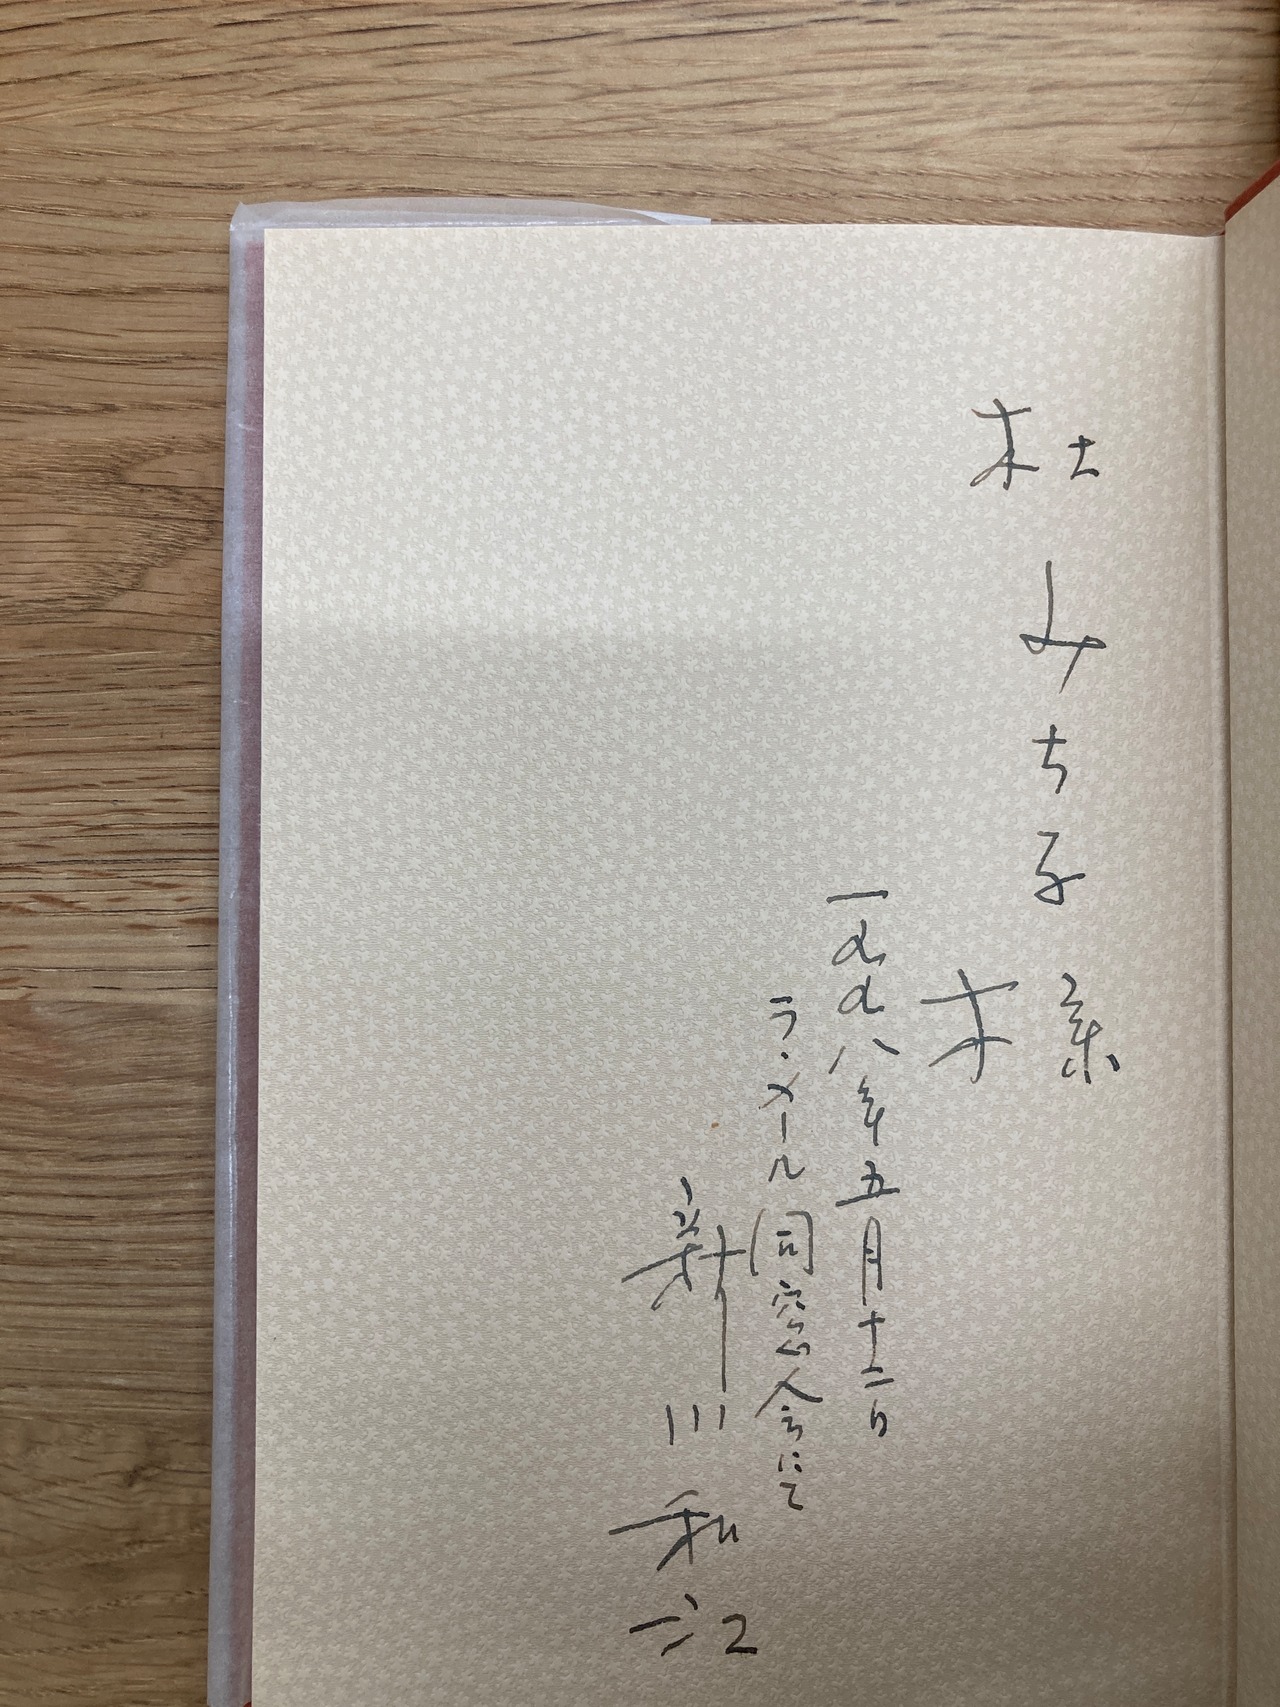 杜みち子様
一九九八年五月十二日
ラ・メール同窓会にて
新川和江